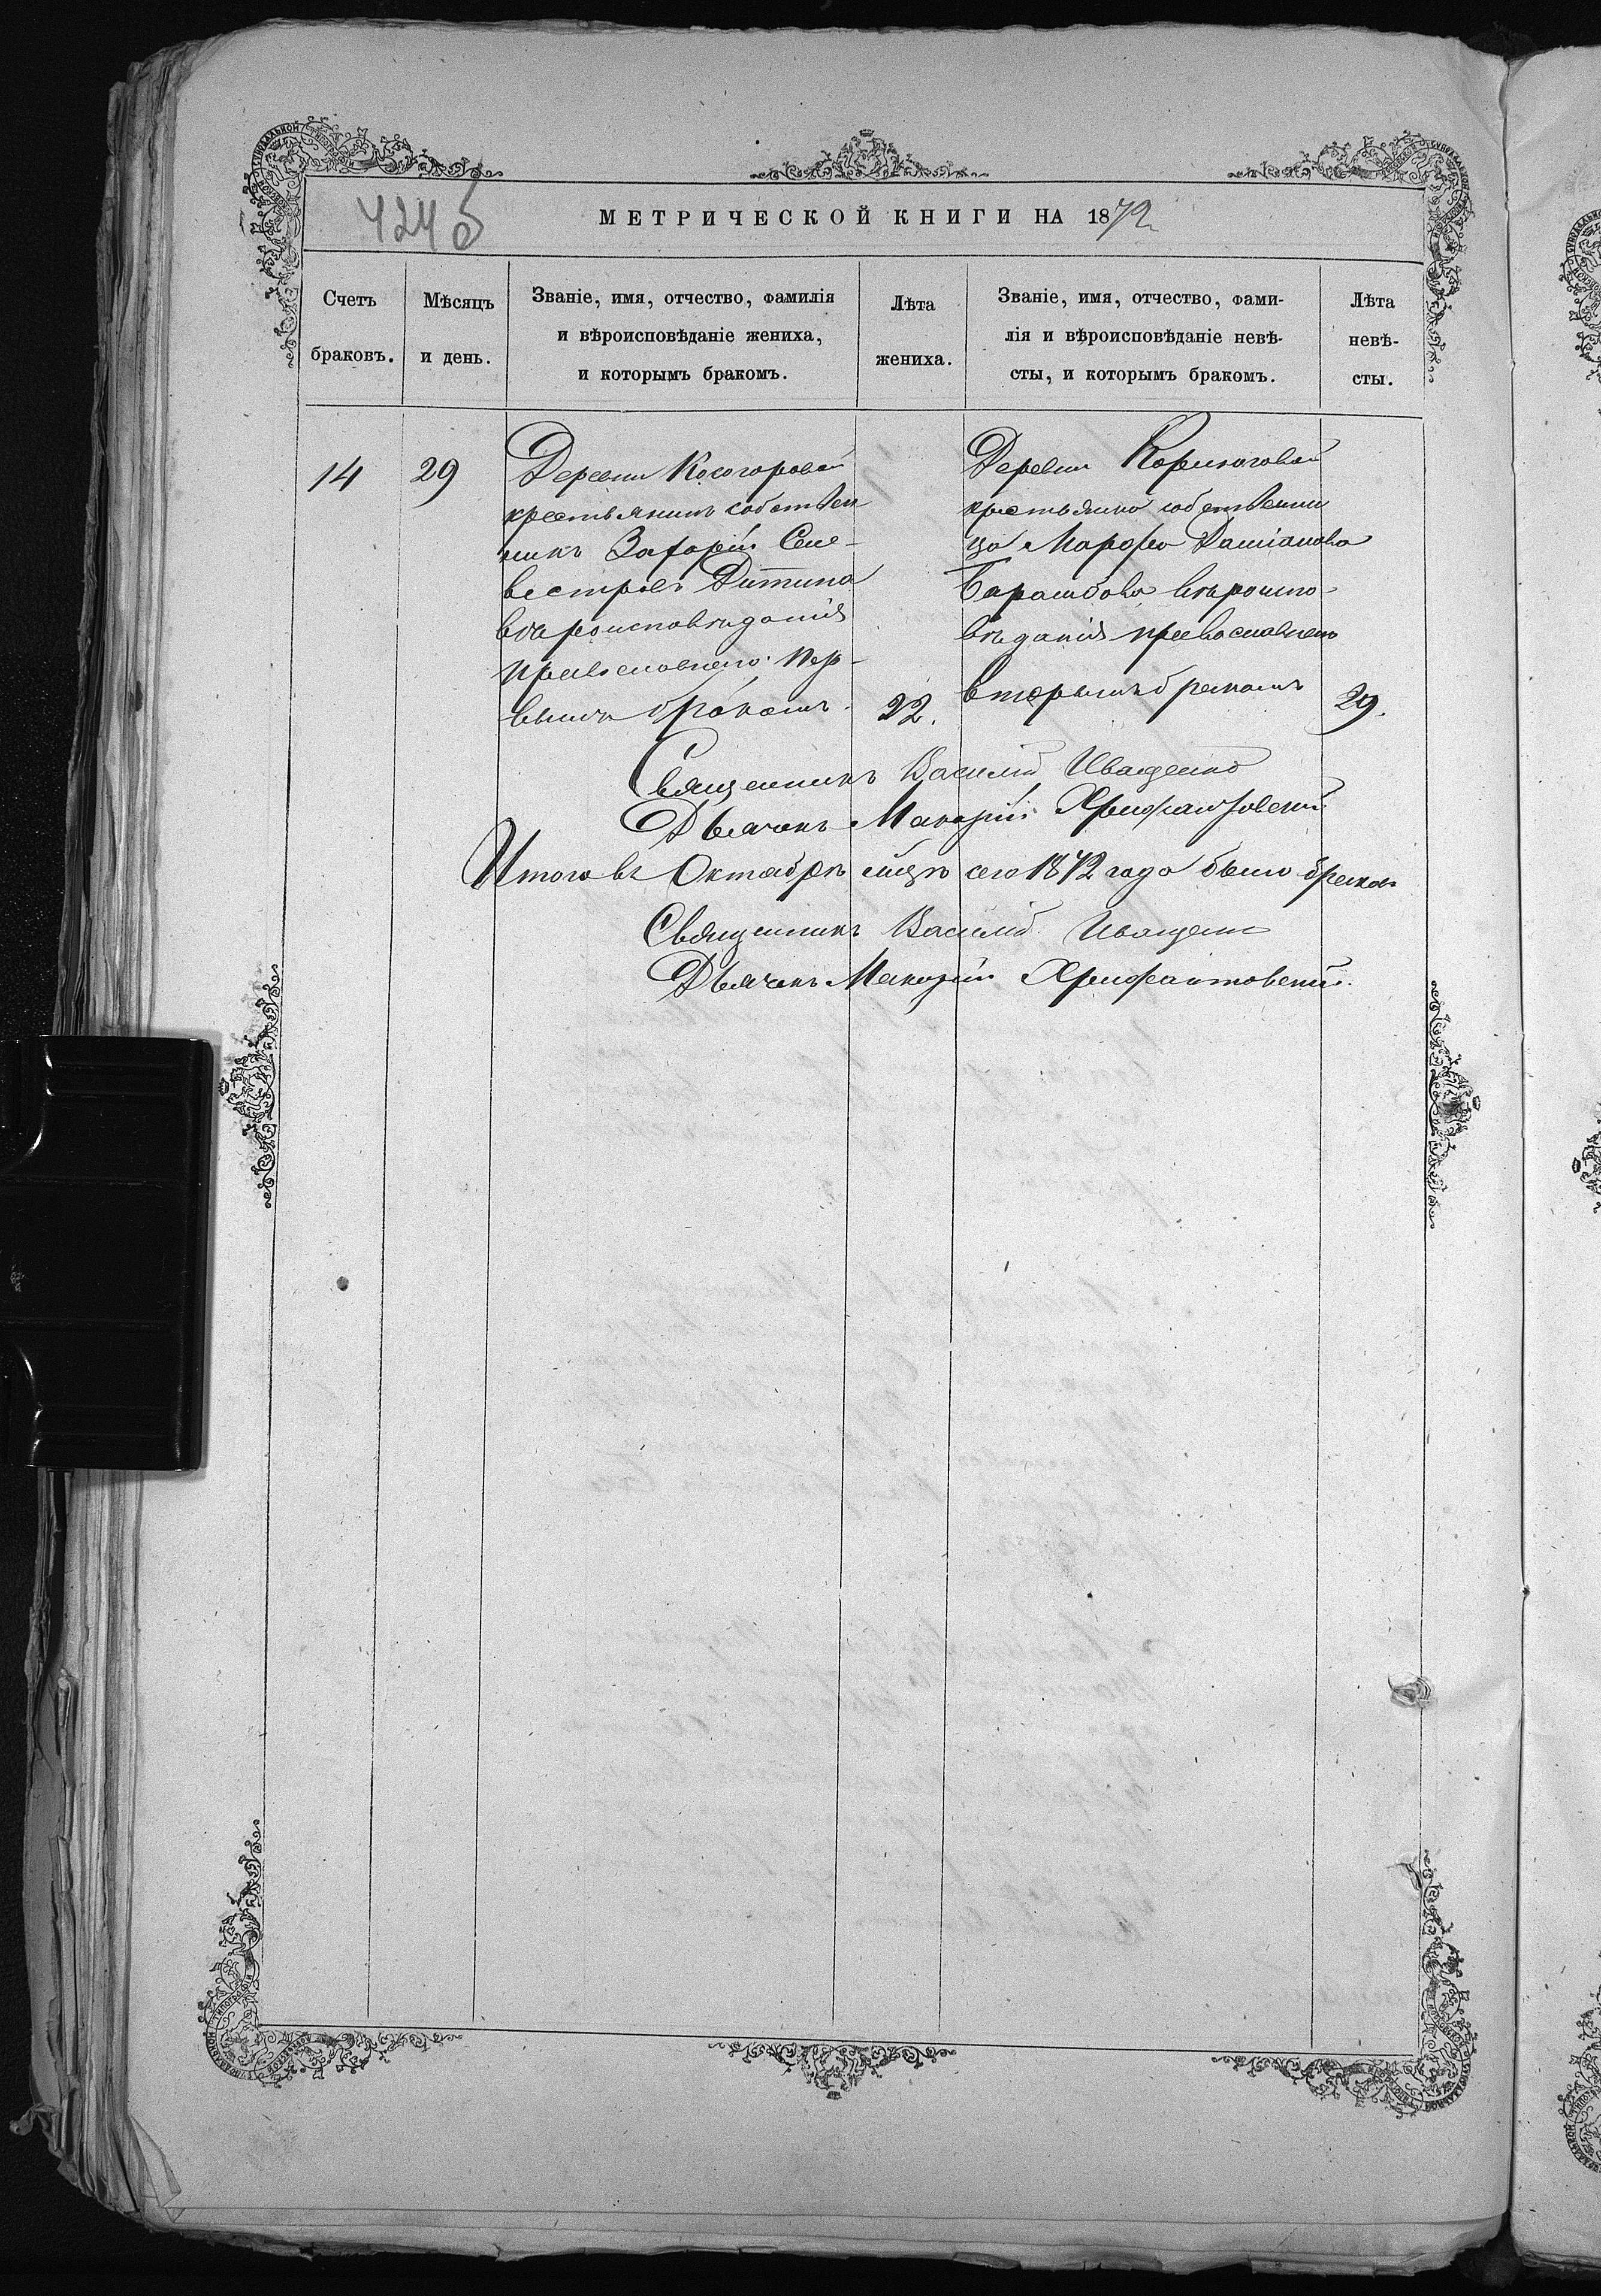 424об
МЕТРИЧЕСКОЙ КНИГИ НА 1872
Счетъ браковъ.
Мѣсяцъ и день.
Званіе, имя, отчество, фамилія
и вѣроисповѣданіе жениха,
и которымъ бракомъ.
Лѣта жениха.
Званіе, имя, отчество, фами-
лія и вѣроисповѣданіе невѣ-
сты, и которымъ бракомъ.
Лѣта невѣ-
сты.
14
29
Деревни Косогоровой
крестьянинъ собствен
никъ Захарій Сели-
вестровъ Дитина
вѣроисповѣданія
православнаго. пер-
вымъ бракомъ.
22.
Деревни
крестьянка собственни
ца Марфа Даміанова
Барашбова вѣроиспо-
вѣданія православнаго
вторымъ бракомъ
29.
Священникъ Василій Иващенко
Дьячекъ Макарій Хрисанфовскій
Итого въ Октябрѣ мцѣ сего 1872 года было браков
Священникъ Василій Иващенко
Дьячекъ Макарій